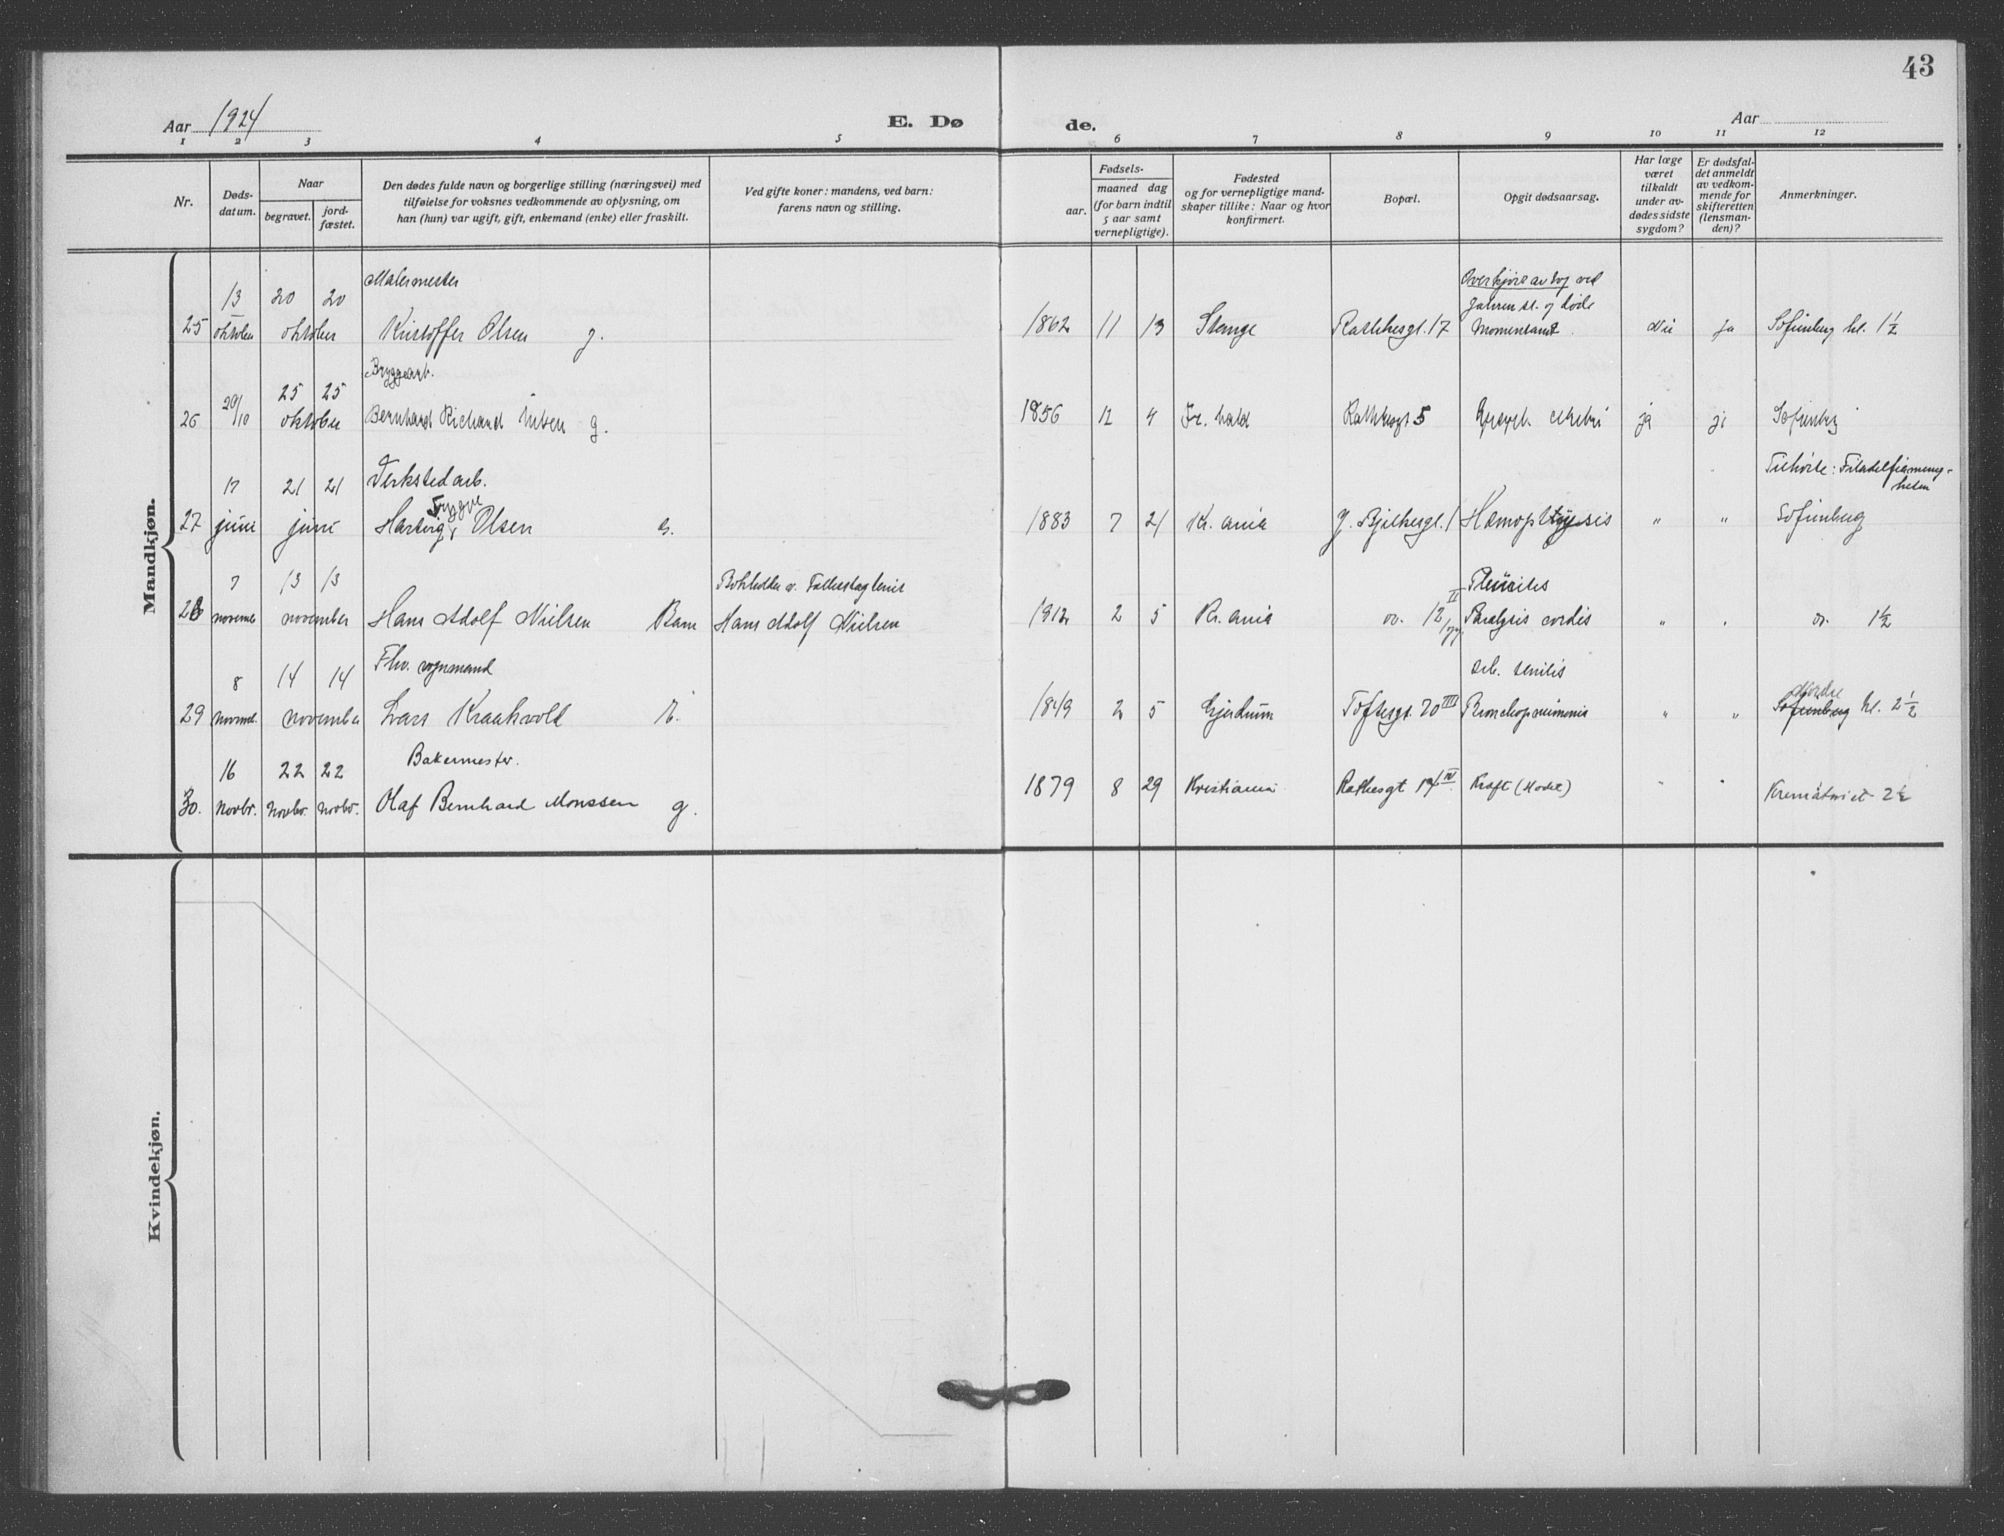 43
Aar 1924
E. Dø de.
Aar
1 2 3 4 5 6 7 8 9 10 11 12
Nr.
Døds-
datum.
Naar
begravet.
jord-
fæstet.
Den dødes fulde navn og borgerlige stilling (næringsvei) med
tilføielse for voksnes vedkommende av oplysning, om
han (hun) var ugift, gift, enkemand (enke) eller fraskilt.
Ved gifte koner: mandens, ved barn:
farens navn og stilling.
Fødsels-
aar.
maaned dag
(for barn indtil
5 aar samt
vernepligtige).
Fødested
og for vernepligtige mand-
skaper tillike: Naar og hvor
konfirmert.
Bopæl.
Opgit dødsaarsag.
Har læge
været
tilkaldt
under av-
dødes sidste
sygdom?
Er dødsfal-
det anmeldt
av vedkom-
mende for
skifteretten
(lensman-
den)?
Anmerkninger.
Mandkjøn.
Malermester
Overkjørt av tog ved
13 20 20
st. og døde
25 oktober oktober Kristoffer Olsen g. 1862 11 13 Stange Rathkesgt. 17 Momentant. Nei ja Sofienberg kl. 1½
Bryggearb.
25 25
26 20/10 oktober Bernhard Richard Nilsen g. 1856 12 4 Fr. hald Rathkesgt 5 ja ja Sofienberg
Verkstedarb.
Tilhørte: Filadelfiamenig-
heten
17 21 21
Trygve
27 juni juni Hartvig Olsen e. 1883 7 21 Kr. ania J. Bjelkesgt. 1 Hæmoptysis " " Sofienberg
7 13 13
Pleurites
28 november Hans Adolf Nielsen Barn Hans Adolf Nielsen 1912 2 5 Kr. ania 12 II Paralysis cordis " " 1½
Fhv. vognmand
8 14 14
senilis
Nordre
29 november Lars Kraakvold E. 1849 2 5 Gjerdrum Toftesgt. 20 III Bronchopneumonia " " Sofienberg kl. 2½
Bakermester.
16 22 22
30. Novbr. Novbr. Novbr. Olaf Bernhard Monssen g. 1879 8 29 Kristiania Rathesgt 17 IV Kræft " " Krematoriet 2½
Kvindekjøn.